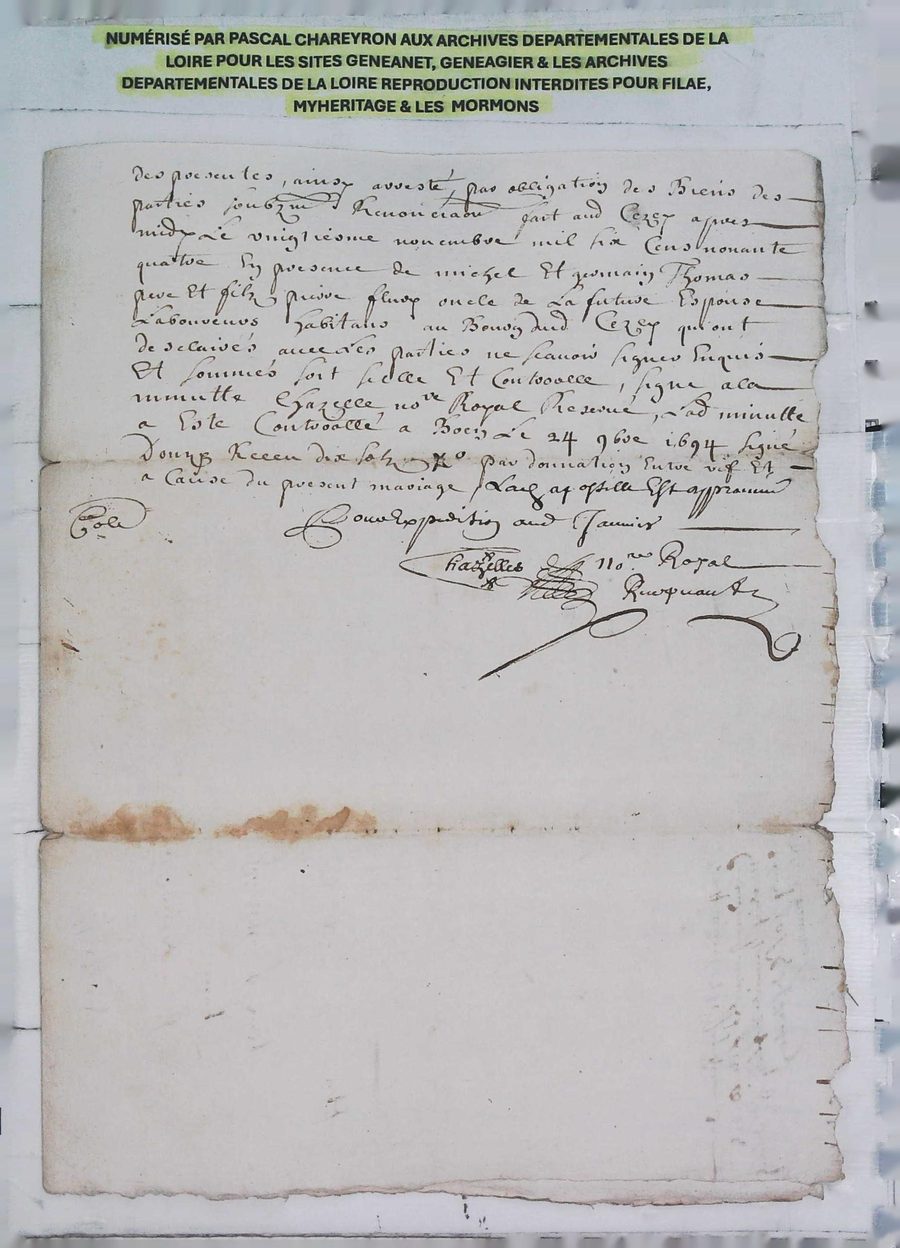 NUMÉRISÉ PAR PASCAL CHAREYRON AUX ARCHIVES DEPARTEMENTALES DE LA
LOIRE POUR LES SITES GENEANET, GENEAGIER & LES ARCHIVES
DEPARTEMENTALES DE LA LOIRE REPRODUCTION INTERDITES POUR FILAE,
MYHERITAGE & LES MORMONS
des presentes, ainsy arresté, par obligation des Biens des
parties Renonciaon fait aud Cezey apres
midy Le vingtiesme novembre mil six Cens nonante
quatre En presence de michel Et germain Thomas
pere Et filz pierre oncle de La future Espouse
Laboureurs habitans au Bourg dud Cezey quiont
desclairés avec Les parties ne scavoir signer Enquis
Et sommés soit scelle Et Controolle, signe ala
minutte Chazelle no.re Royal Reservé, Lad minutte
a Este Controollé a Boen Le 24 9bre 1694 signé
Receu dix solz par donnation Entre vif Et
a Cause du present mariage, apostille Est appreuvé
Pour Expedition aud
Chazelles no.re Royal